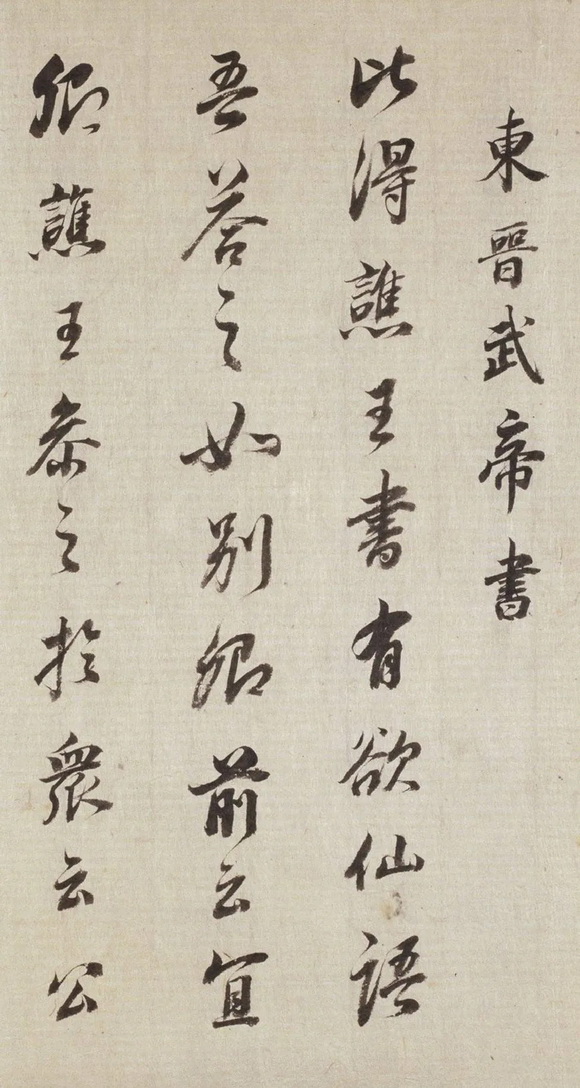 東晉武帝書
比得譙王書有欲仙語
吾荅之如別卿前云宜
卿譙王恭之於眾云公